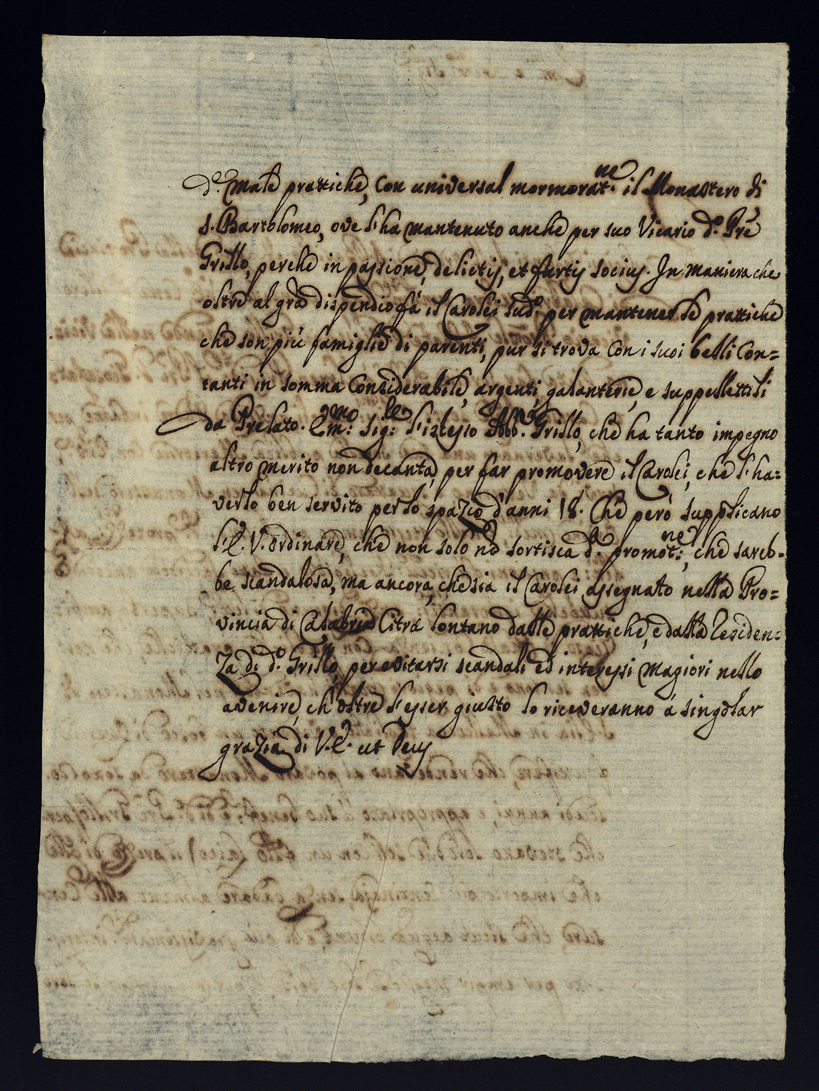 d.e male prattiche, con universal mormorat.ne il Monastero di
S. Bartolomeo, ove l'ha mantenuto anche per suo Vicario d.o Pre
Grillo, perche in passione, delictis, et furtis socius. In maniera che
oltre al grã dispendio fà il Carolei sud.o per mantener le prattiche
che son più famiglie di parenti, pur si trova con i suoi belli con=
tanti in somma considerabile, argenti, galanterie, e suppellettili
da Prelato. Em.mo Sig.re l'istesso Abb.e Grillo, che ha tanto impegno
altro merito non decanta, per far promovere il Carolei, che l'ha=
verlo ben servito per lo spazio d'anni 18. Che però supplicano
l'E. V. ordinare, che non solo nõ sortisca d.a promot.ne, che sareb=
be scandalosa, ma ancora, che sia il Carolei assegnato nella Pro=
vincia di Calabria Citra lontano dalle prattiche, e dalla residen=
za di d.o Grillo, per evitarsi scandali ed interessi magiori nello
avenire, ch'oltre l'esser giusto lo riceveranno à singolar
grazia di V. E. ut Deus